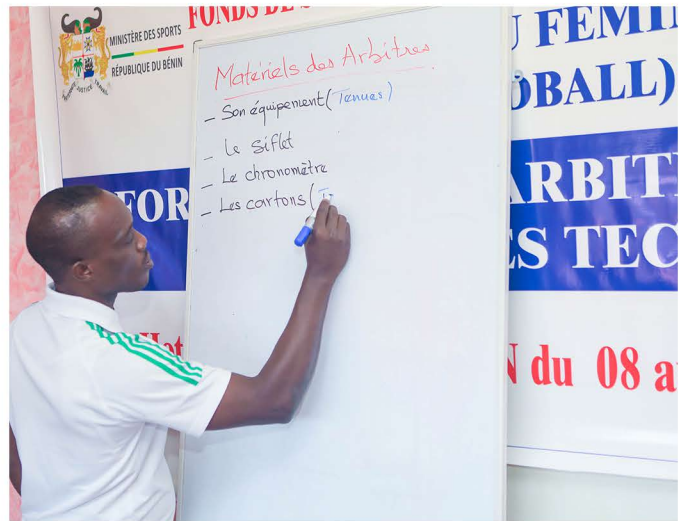 MINISTÈRE DES SPORTS
RÉPUBLIQUE DU BÉNIN
FONDS DE
U FEMI
OBALL)
FOR
ARBIT
ES TEC
Hot
N du 08 a
Matériels des Arbitres
_ Son équipement (Tenues)
_ Le Siflet
_ Le chronomètre
_ Les cartons (